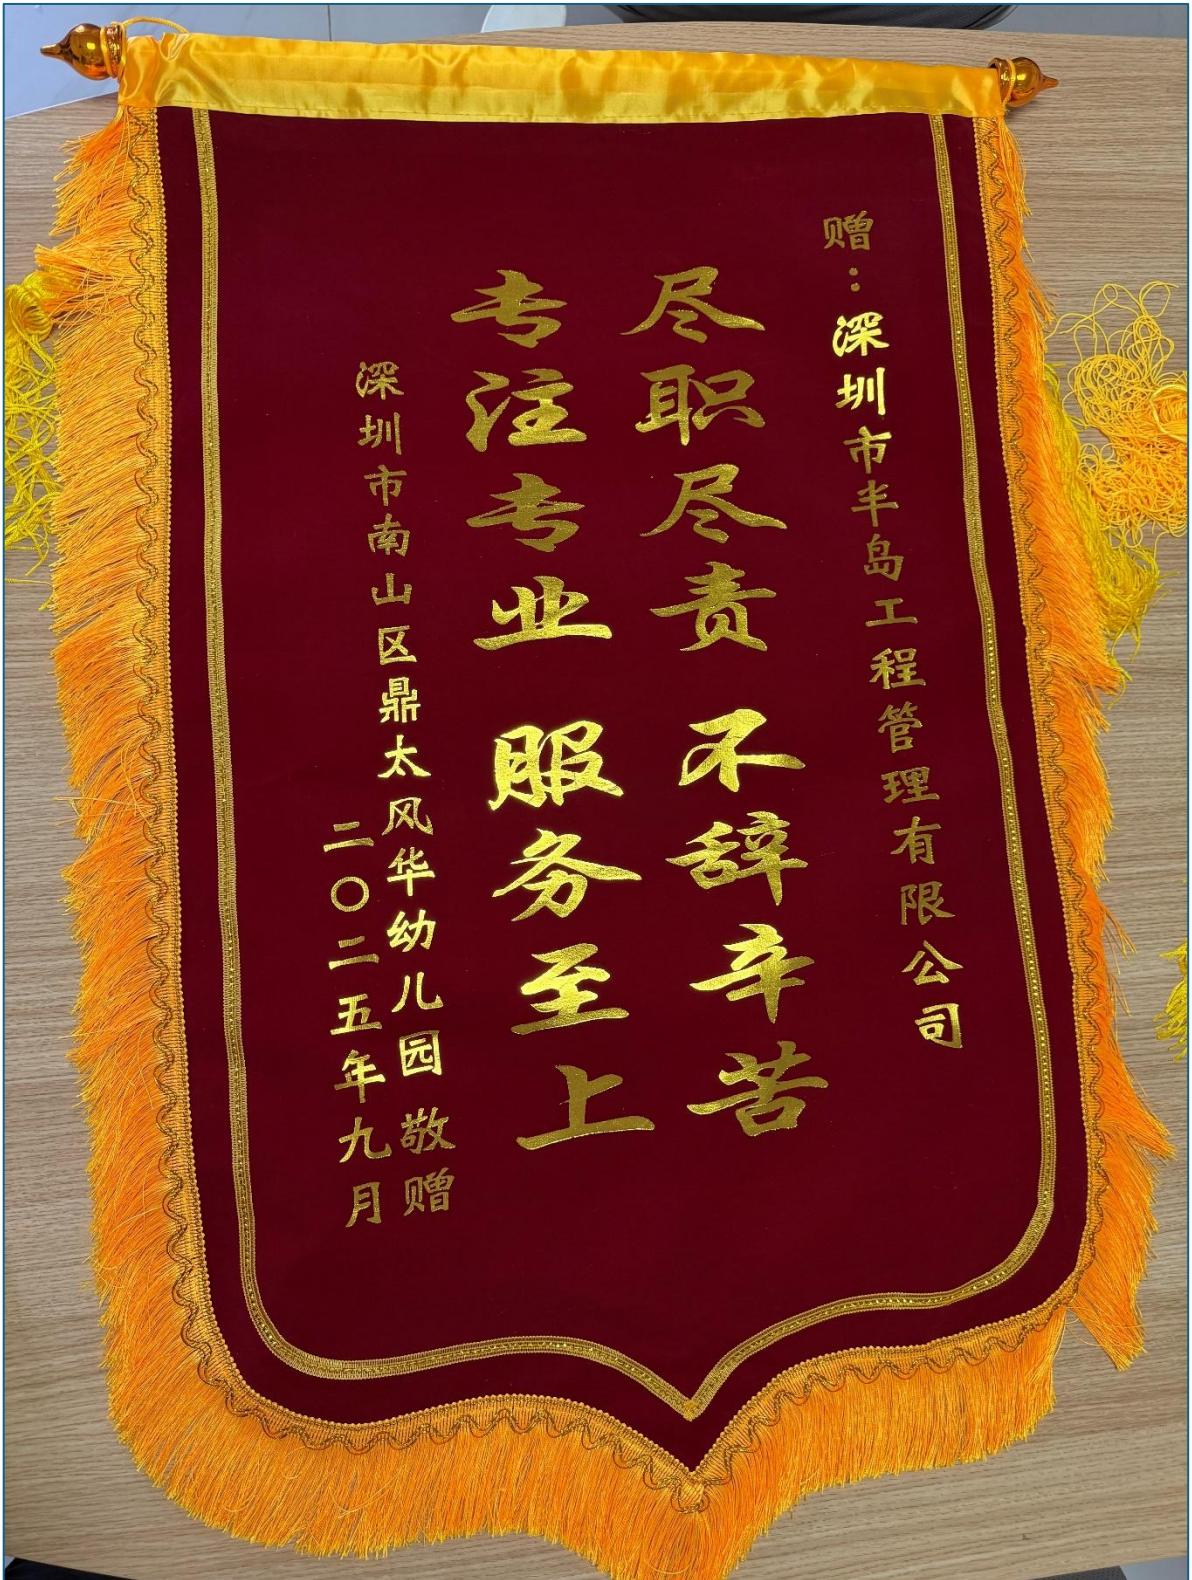 赠：深圳市半岛工程管理有限公司
尽职尽责 不辞辛苦
专注专业 服务至上
深圳市南山区鼎太风华幼儿园 敬赠
二〇二五年九月